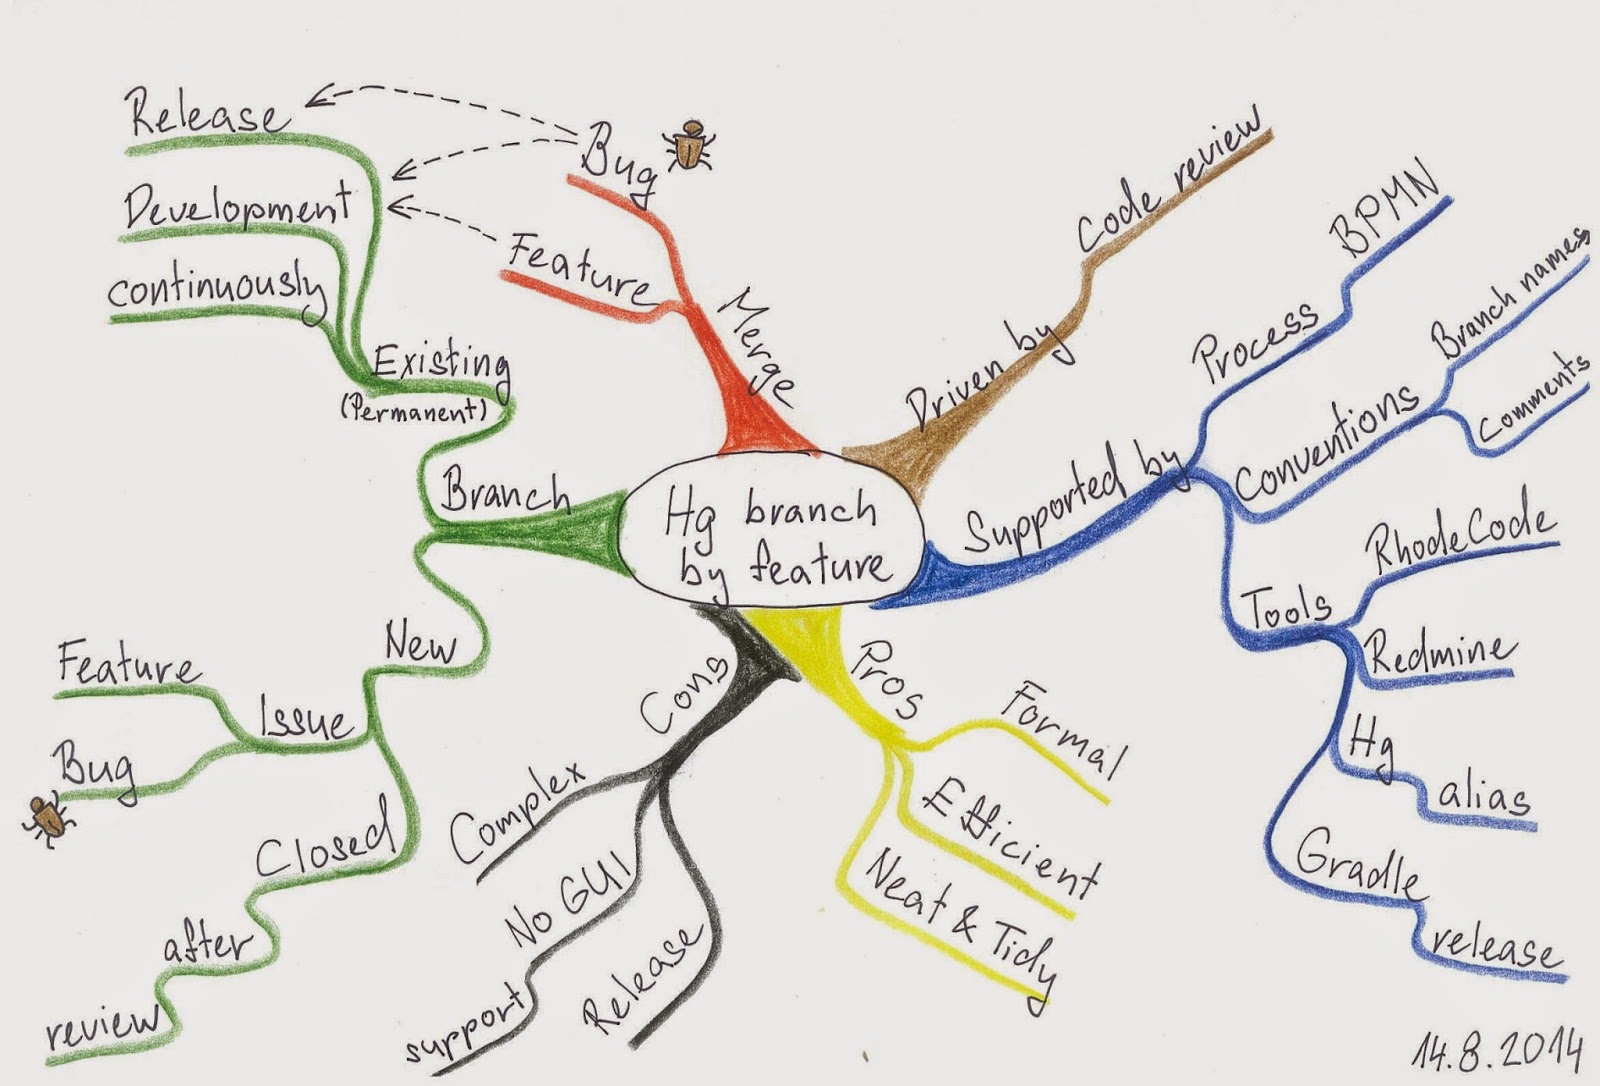 Hg branch
by feature
Merge
Bug
Feature
Driven by
Code review
Supported by
Process
BPMN
Conventions
Branch names
Comments
Tools
RhodeCode
Redmine
Hg
alias
Gradle
release
Pros
Formal
Efficient
Neat & Tidy
Cons
Complex
No GUI
support
Release
Branch
Existing
(Permanent)
Release
Development
continuously
New
Issue
Feature
Bug
Closed
after
review
14.8.2014